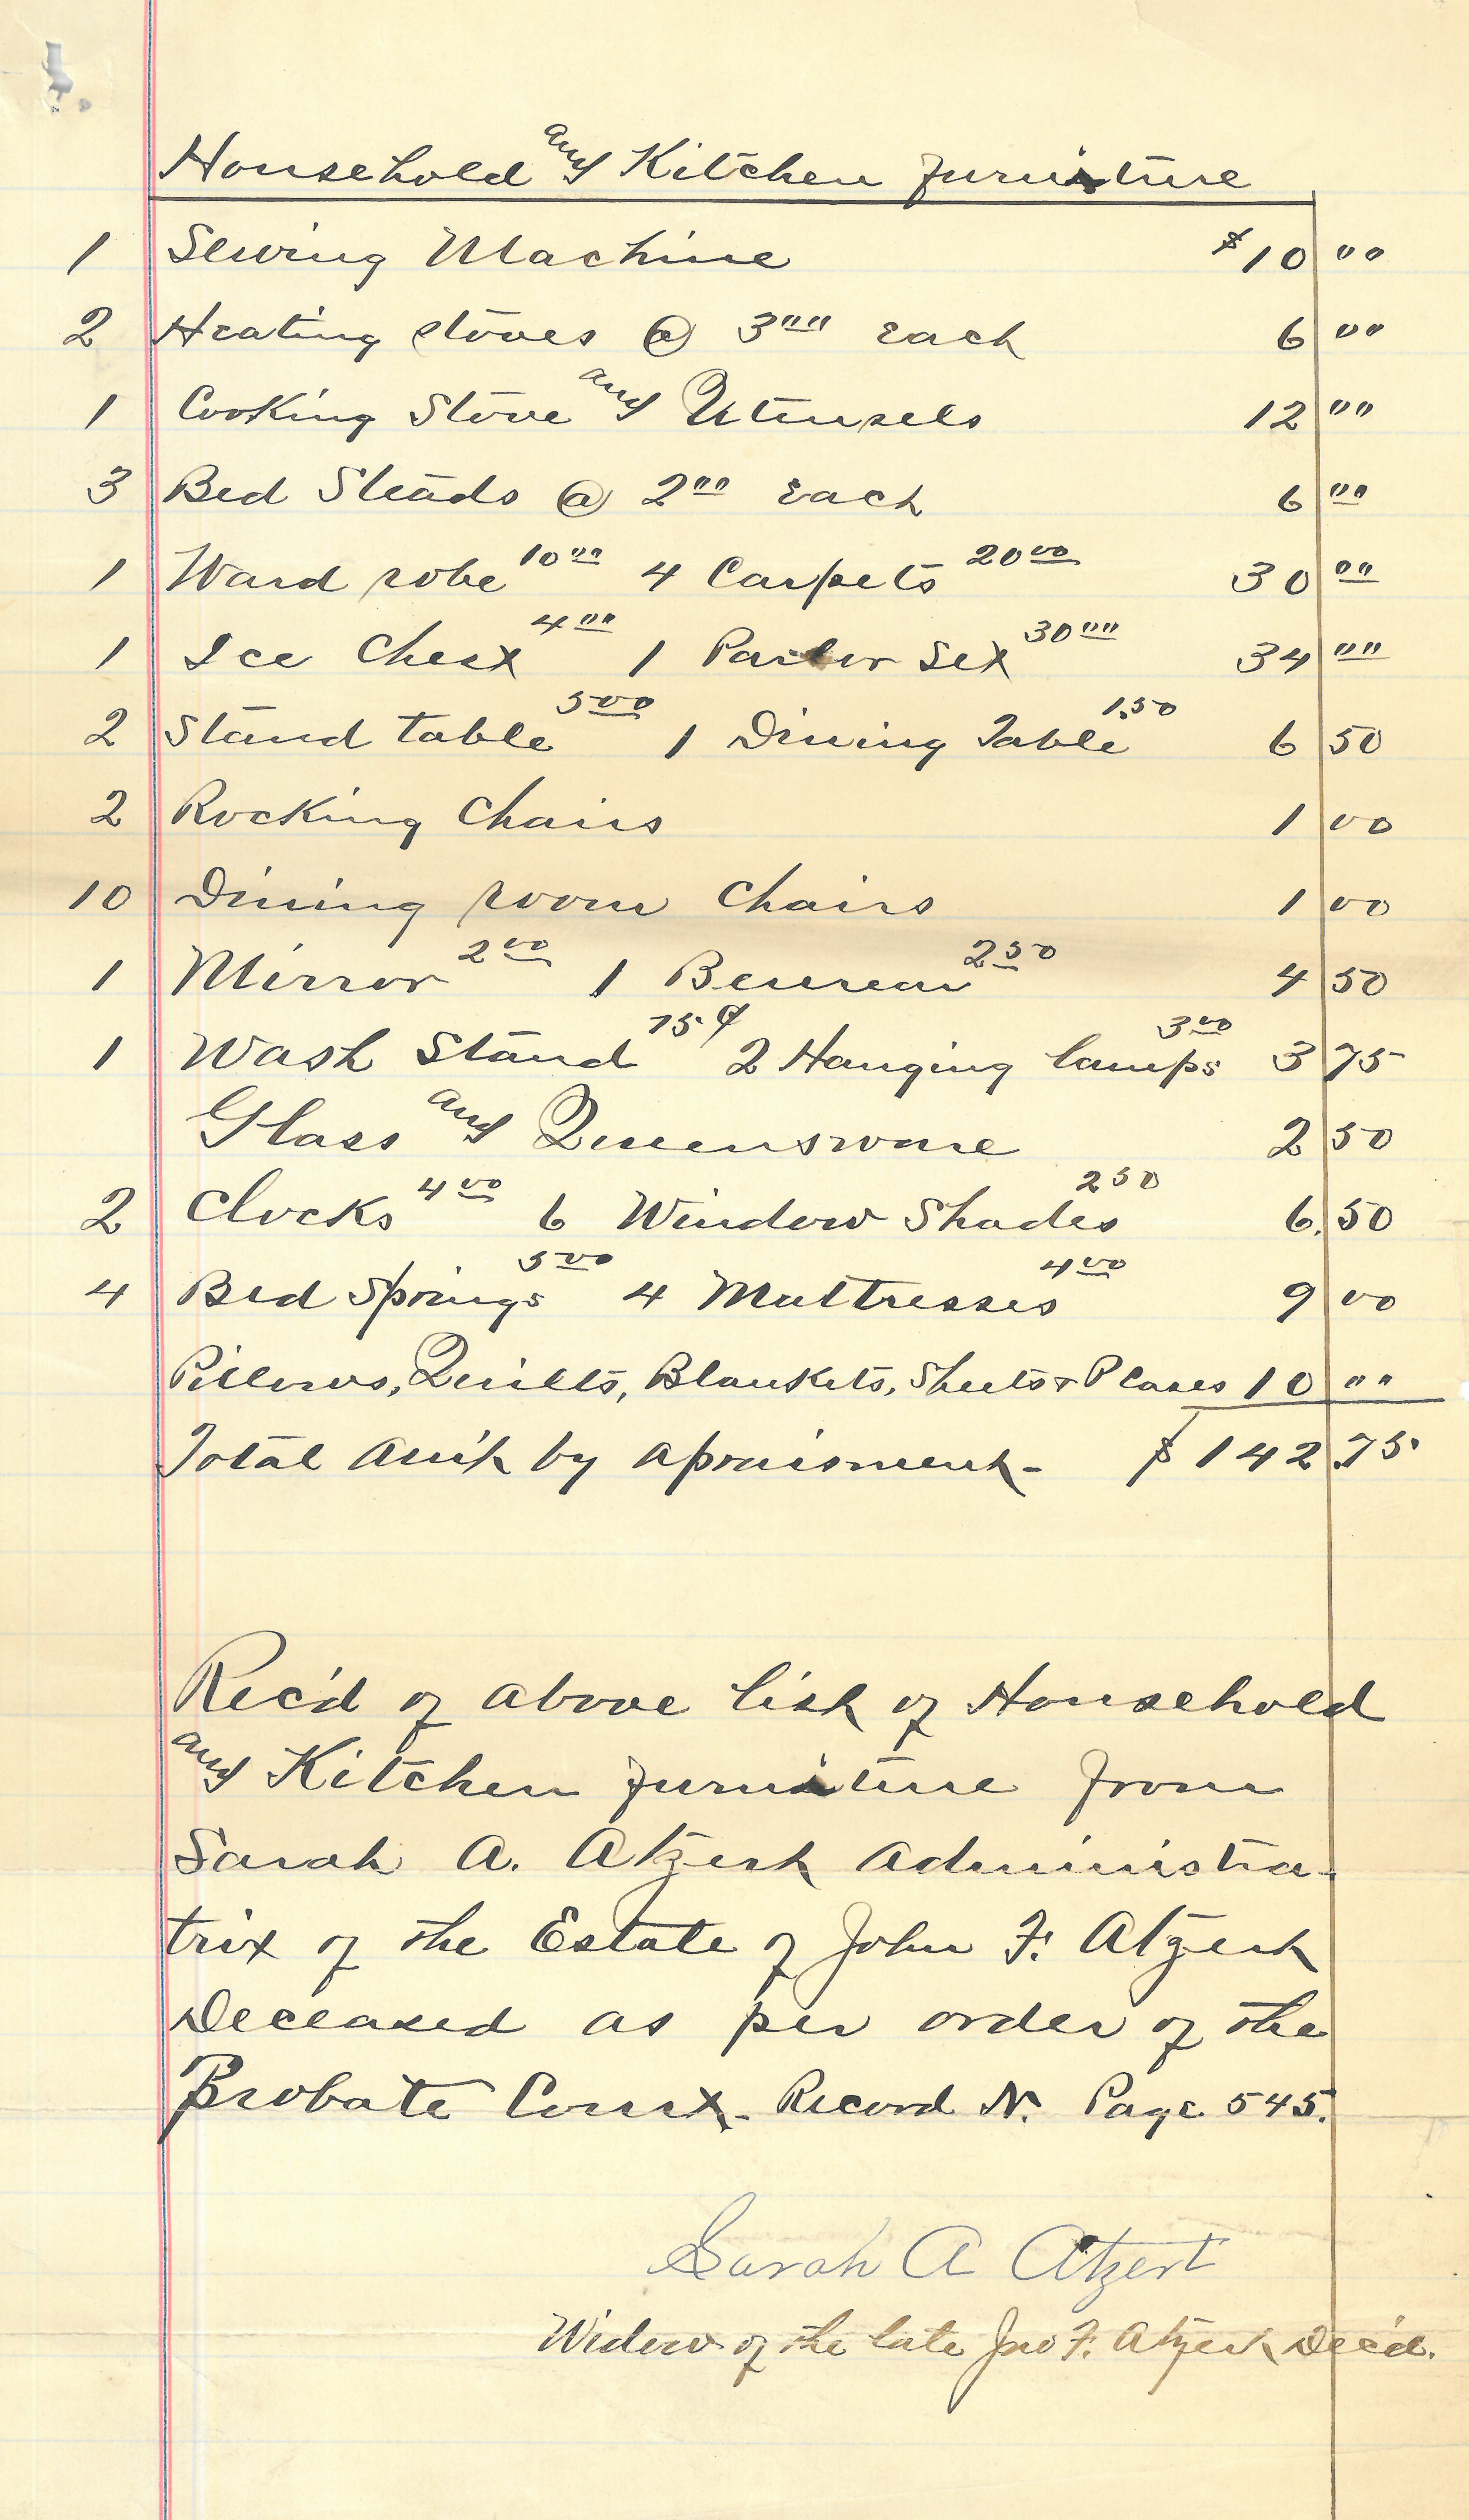 Household and Kitchen furniture
1 Sewing Machine $10 00
2 Heating stoves @ 3 00 Each 6 00
1 Cooking Stove and Utensels 12 00
3 Bed Steads @ 2 00 Each 6 00
1 Ward robe 10 00 4 Carpets 20 00 30 00
1 Ice Chest 4 00 1 Parlor Set 30 00 34 00
2 Stand table 5 00 1 Dining Table 1.50 6 50
2 Rocking Chairs 1 00
10 Dining room Chairs 1 00
1 Mirror 2 00 1 Beureau 2 50 4 50
1 Wash Stand 75 ¢ 2 Hanging lamps 3 00 3 75
Glass and Queensware 2 50
2 Clocks 4 00 6 Window Shades 2 50 6.50
4 Bed Springs 5 00 4 Mattresses 4 00 9 00
Pillows, Quilts, Blankets, Sheets & 10 00
Total Am't by apraisment - $ 142.75
Rec'd of above list of Household
and Kitchen furniture from
Sarah A. Atzert Administra-
trix of the Estate of John F. Atzert
Deceased as per order of the
Probate Court - Record N. Page 545.
Sarah A Atzert
Widow of the late Jno F. Atzert Dec'd.